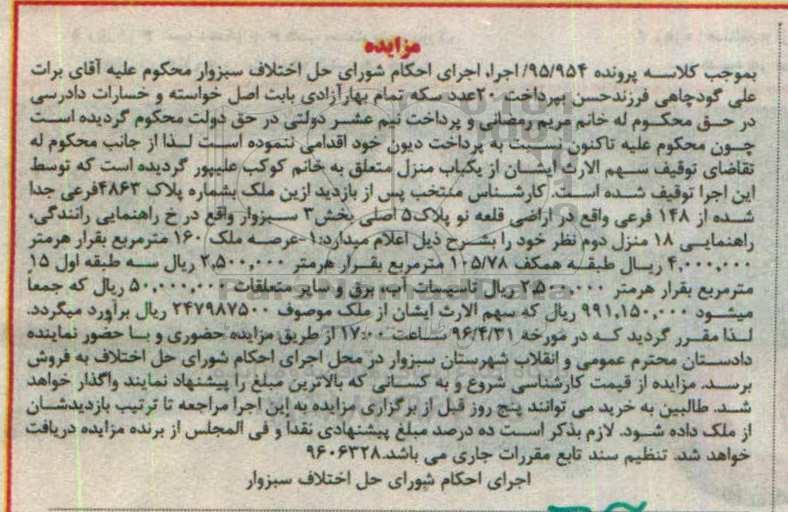 مزایده
بموجب کلاسه پرونده ۹۵/۹۵۴/ اجرا، اجرای احکام شورای حل اختلاف سبزوار محکوم علیه آقای برات
علی گودچاهی فرزندحسن بپرداخت ۲۰عدد سکه تمام بهارآزادی بابت اصل خواسته و خسارات دادرسی
در حق محکوم له خانم مریم رمضانی و پرداخت نیم عشر دولتی در حق دولت محکوم گردیده است
چون محکوم علیه تاکنون نسبت به پرداخت دیون خود اقدامی ننموده است لذا از جانب محکوم له
تقاضای توقیف سهم الارث ایشان از یکباب منزل متعلق به خانم کوکب علیپور گردیده است که توسط
این اجرا توقیف شده است. کارشناس منتخب پس از بازدید ازین ملک بشماره پلاک ۴۸۶۳فرعی جدا
شده از ۱۴۸ فرعی واقع در اراضی قلعه نو پلاک۵ اصلی بخش۳ سبزوار واقع در خ راهنمایی رانندگی،
راهنمایی ۱۸ منزل دوم نظر خود را بشرح ذیل اعلام میدارد:۱-عرصه ملک ۱۶۰ مترمربع بقرار هرمتر
۴,۰۰۰,۰۰۰ ریال طبقه همکف ۱۰۵/۷۸ مترمربع بقرار هرمتر ۲,۵۰۰,۰۰۰ ریال سه طبقه اول ۱۵
مترمربع بقرار هرمتر ۲,۵۰۰,۰۰۰ ریال تاسیسات آب، برق و سایر متعلقات ۵۰,۰۰۰,۰۰۰ ریال که جمعاً
میشود ۹۹۱,۱۵۰,۰۰۰ ریال که سهم الارث ایشان از ملک موصوف ۲۴۷۹۸۷۵۰۰ ریال برآورد میگردد.
لذا مقرر گردید که در مورخه ۹۶/۴/۳۱ ساعت ۱۷:۰۰ از طریق مزایده حضوری و با حضور نماینده
دادستان محترم عمومی و انقلاب شهرستان سبزوار در محل اجرای احکام شورای حل اختلاف به فروش
برسد. مزایده از قیمت کارشناسی شروع و به کسانی که بالاترین مبلغ را پیشنهاد نمایند واگذار خواهد
شد. طالبین به خرید می توانند پنج روز قبل از برگزاری مزایده به این اجرا مراجعه تا ترتیب بازدیدشان
از ملک داده شود. لازم بذکر است ده درصد مبلغ پیشنهادی نقداً و فی المجلس از برنده مزایده دریافت
خواهد شد. تنظیم سند تابع مقررات جاری می باشد.۹۶۰۶۳۲۸
اجرای احکام شورای حل اختلاف سبزوار